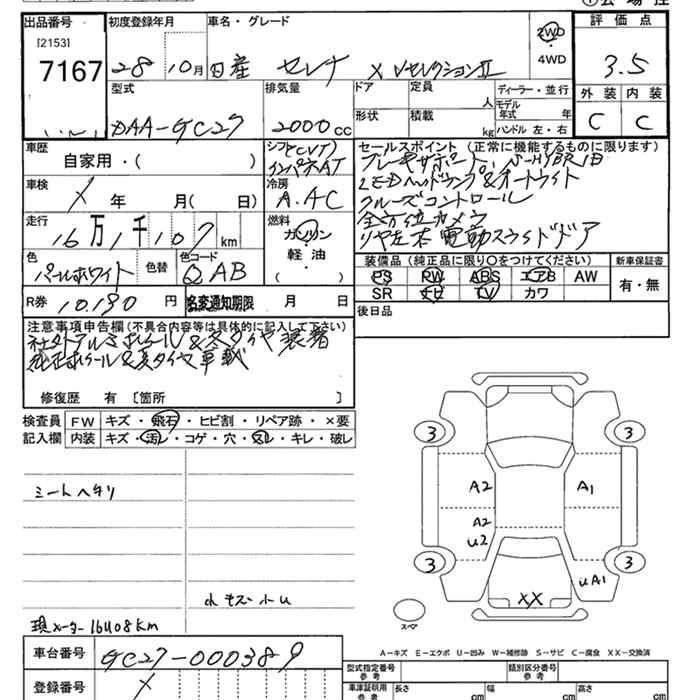 出品番号
[2153]
7167
初度登録年月
28 10月
車名・グレード
日産 セレナ X VセレクションII
2WD
4WD
評価点
3.5
外装 内装
C C
型式
DAA-GC27
排気量
2000cc
ドア
定員
人
形状
積載
kg
ディーラー・並行
モデル年式
年
ハンドル 左・右
車歴
自家用・( )
シフト(CVT)
インパネAT
冷房
A.AC
車検
X 年 月( 日)
走行
16万1千107km
燃料
ガソリン
軽油
( )
色
パールホワイト
色替
色コード
QAB
R券
10.190円
名変通知期限 月 日
セールスポイント(正常に機能するものに限ります)
ブレーキサポート、S-HYBRID
LEDヘッドランプ&オートライト
クルーズコントロール
全方位カメラ
リヤ左右電動スライドドア
装備品(純正品に限り○をつけてください)
PS PW ABS エアB AW
SR ナビ TV カワ
新車保証書
有・無
後日品
注意事項申告欄(不具合内容等は具体的に記入して下さい)
社外アルミホイール&冬タイヤ装着
純正ホイール&夏タイヤ車載
修復歴 有 [箇所 ]
検査員記入欄
FW キズ・飛石・ヒビ割・リペア跡・×要
内装 キズ・汚レ・コゲ・穴・スレ・キレ・破レ
シートヘタリ
現メーター 161108km
3
3
3
3
A2
A1
A2
U2
UA1
XX
スペア
A-キズ E-エクボ U-凹み W-補修跡 S-サビ C-腐食 XX-交換済
車台番号
GC27-000389
登録番号
X
型式指定番号
参考
類別区分番号
参考
車庫証明用
参考
長さ
cm
幅
cm
高さ
cm